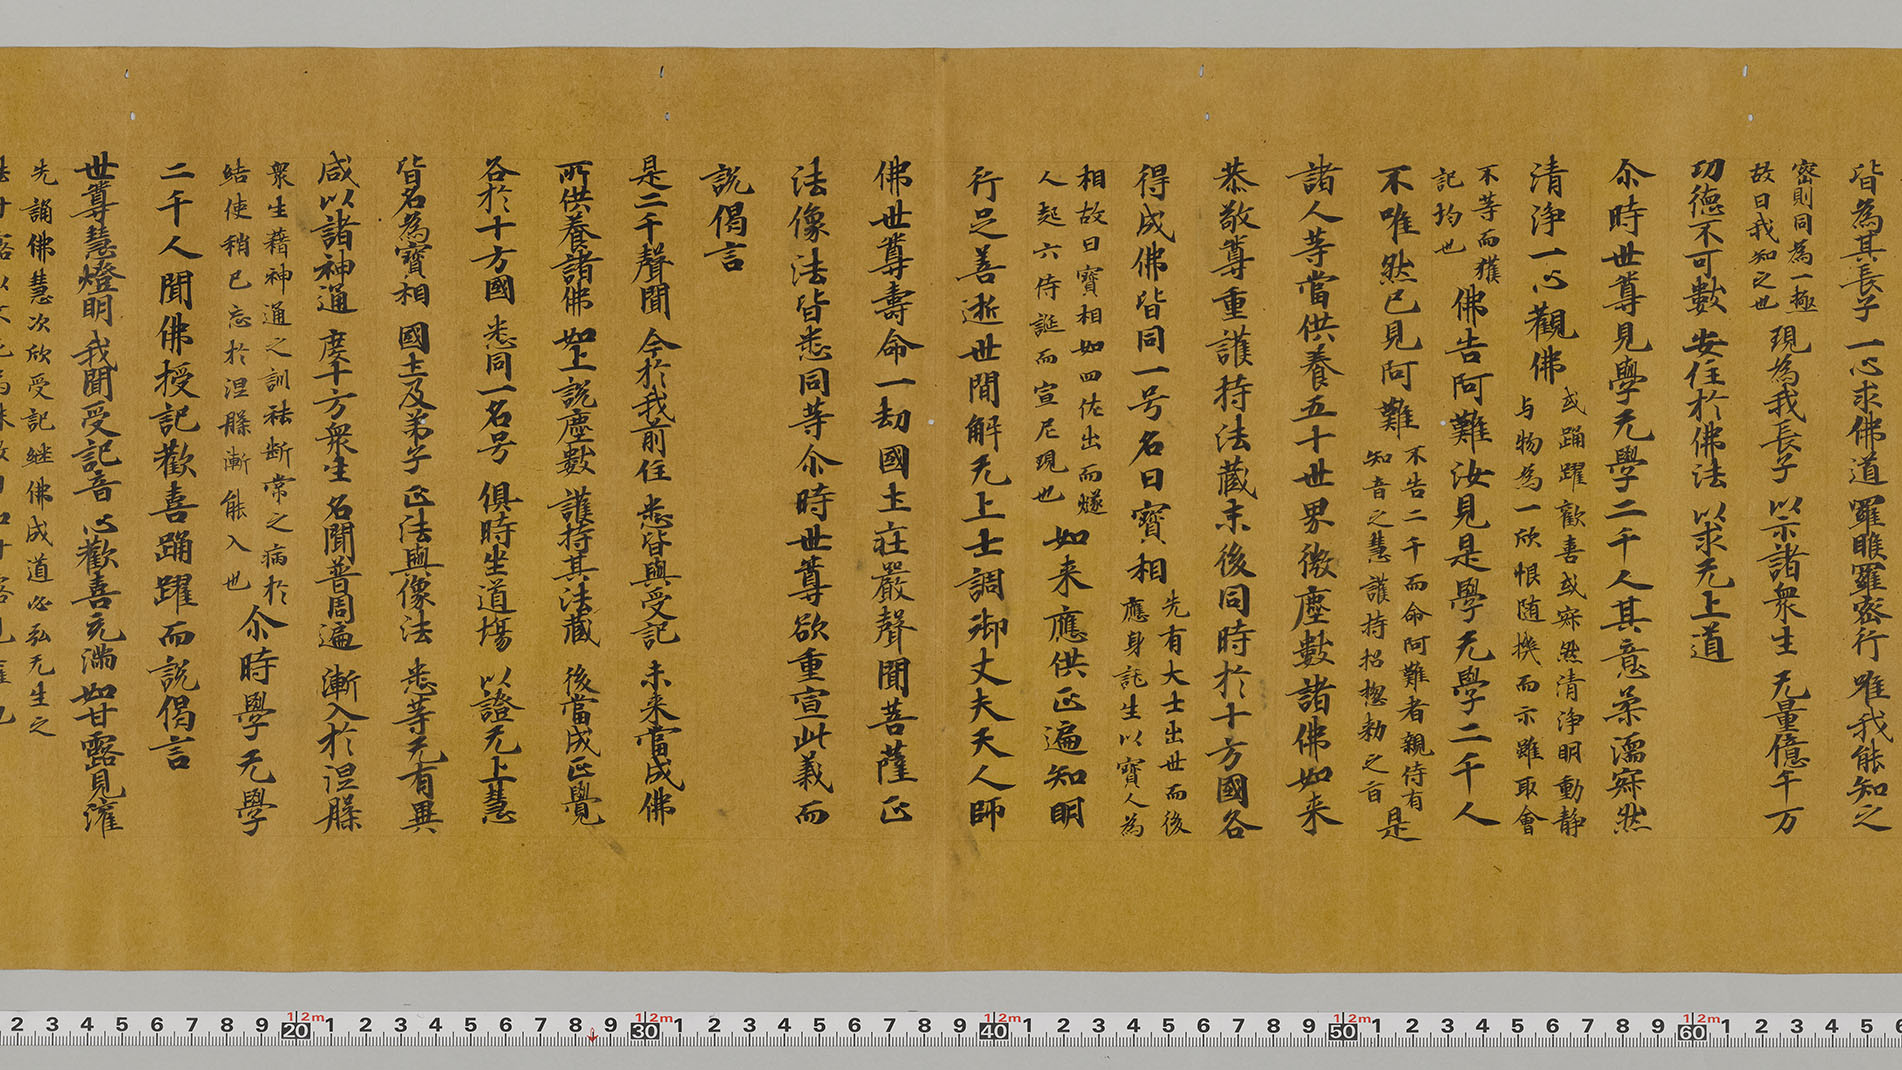 皆為其長子 一心求佛道 羅睺羅密行 唯我能知之
密則同為一極
故曰我知之也
現為我長子 以示諸衆生 无量億千万
功德不可數 安住於佛法 以求无上道
尒時世尊見學无學二千人其意柔濡寂然
清淨一心觀佛
或踊躍歡喜或寂然清淨明動静
与物為一欣恨随機而示雖取會
不等而獲
記均也
佛告阿難汝見是學无學二千人
不唯然已見阿難
不告二千而命阿難者親侍有
知音之慧護持招揔勑之旨
是
諸人等當供養五十世界微塵數諸佛如来
恭敬尊重護持法藏末後同時於十方國各
得成佛皆同一号名曰寶相
先有大士出世而後
應身託生以寶人為
相故曰寶相如四佐出而燧
人起六侍誕而宣尼現也
如来應供正遍知明
行足善逝世間解无上士調御丈夫天人師
佛世尊壽命一劫國土莊嚴聲聞菩薩正
法像法皆悉同等尒時世尊欲重宣此義而
說偈言
是二千聲聞 今於我前住 悉皆與受記 未来當成佛
所供養諸佛 如上說塵數 護持其法藏 後當成正覺
各於十方國 悉同一名号 俱時坐道場 以證无上慧
皆名為寶相 國土及弟子 正法與像法 悉等无有異
咸以諸神通 度十方衆生 名聞普周遍 漸入於涅槃
衆生藉神通之訓祛断常之病於
結使稍已忘於涅槃漸能入也
尒時學无學
二千人聞佛授記歡喜踊躍而說偈言
世尊慧燈明 我聞受記音 心歡喜充満 如甘露見灌
先誦佛慧次欣受記継佛成道必弘无生之